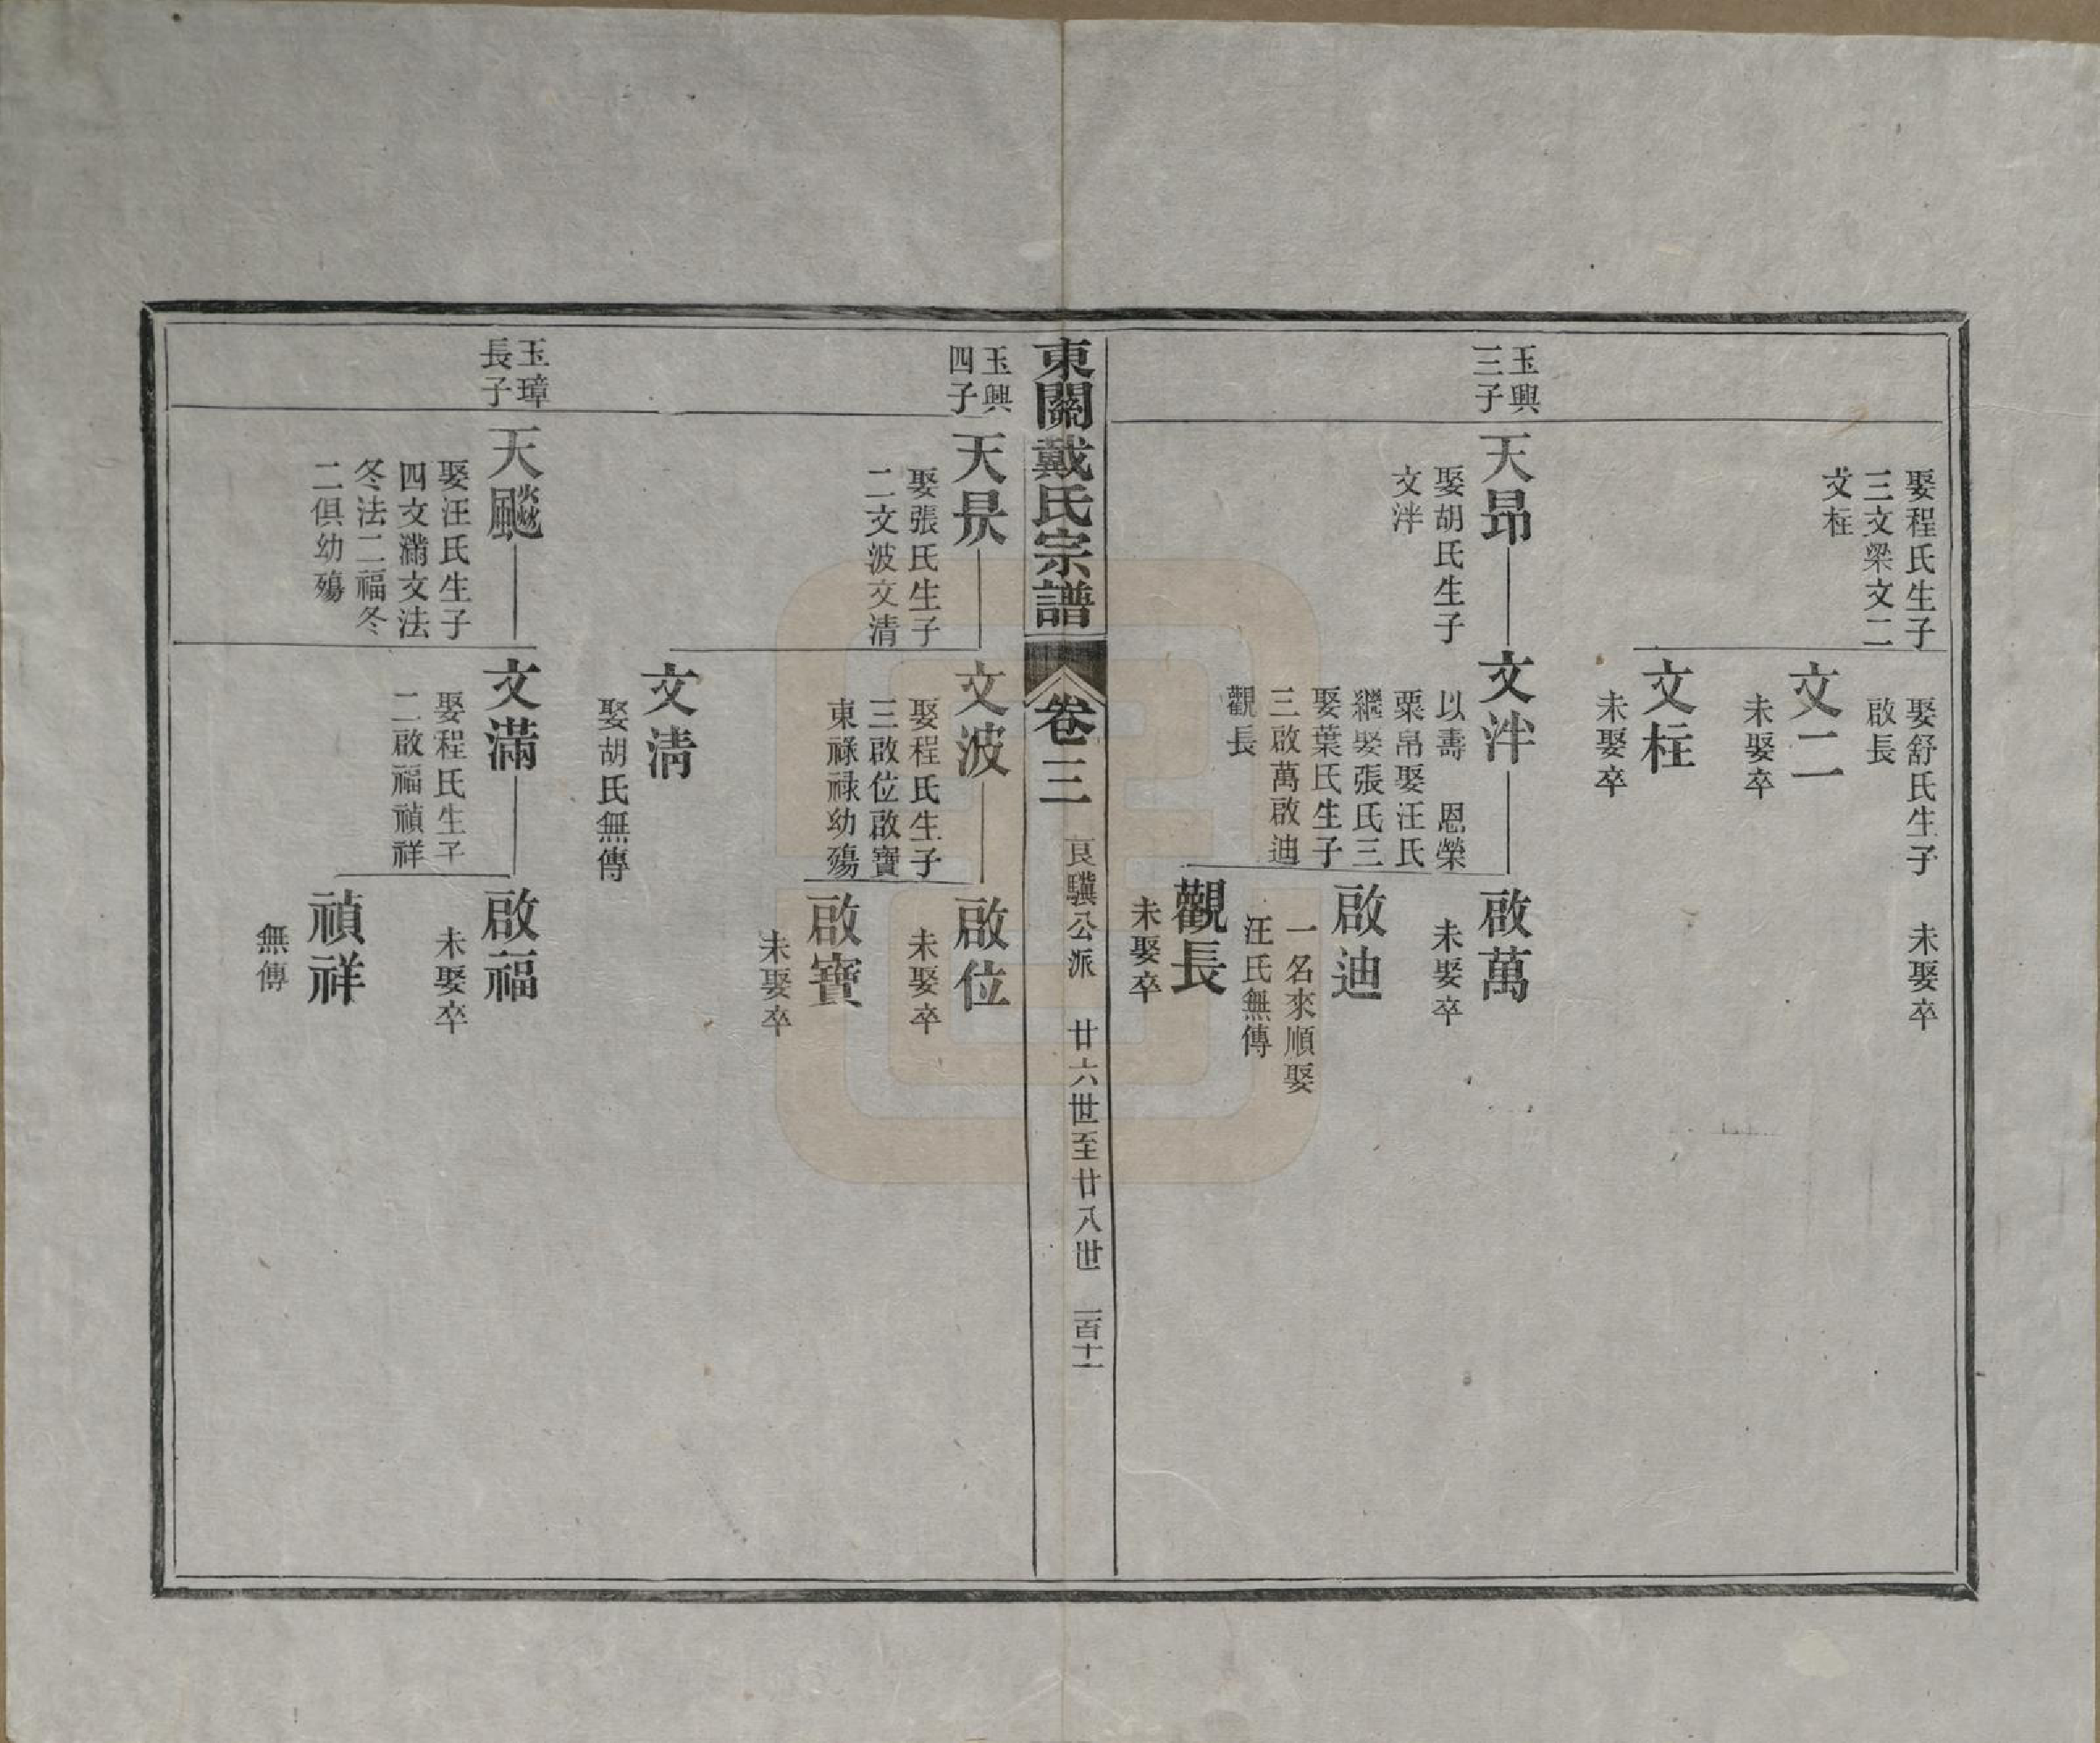 娶程氏生子
三文梁文二
文柱
娶舒氏生子
啟長
未娶卒
文二
未娶卒
文柱
未娶卒
玉興
三子
天昂
娶胡氏生子
文泮
文泮
以壽　恩榮
粟帛娶汪氏
繼娶張氏三
娶葉氏生子
三啟萬啟迪
觀長
啟萬
未娶卒
啟迪
一名來順娶
汪氏無傳
觀長
未娶卒
東關戴氏宗譜
卷三
良驥公派
廿六世至廿八世
一百十一
玉興
四子
天昃
娶張氏生子
二文波文清
文波
娶程氏生子
三啟位啟寶
東祿祿幼殤
啟位
未娶卒
啟寶
未娶卒
文清
娶胡氏無傳
玉璋
長子
天飈
娶汪氏生子
四文滿文法
冬法二福冬
二俱幼殤
文滿
娶程氏生子
二啟福禎祥
啟福
未娶卒
禎祥
無傳